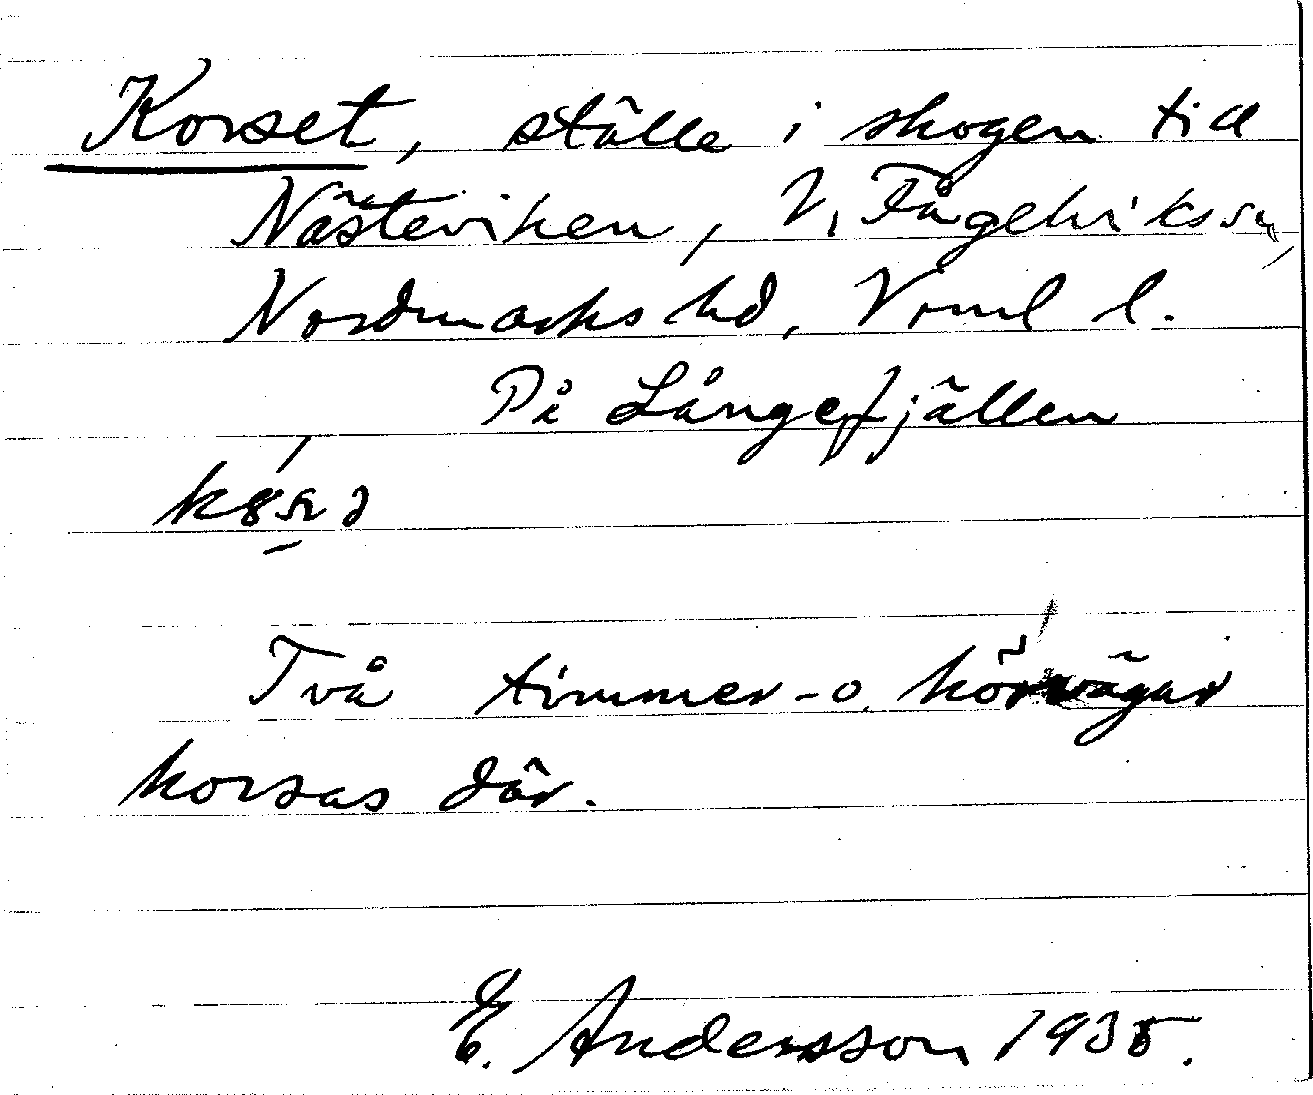 Korset, ställe i skogen till
Nästeviken, V. Fågelvikssn,
Nordmarks hd, Vrml l.
På Långefjällen
Två timmer- o. körvägar
korsas där.
E. Andersson 1935.